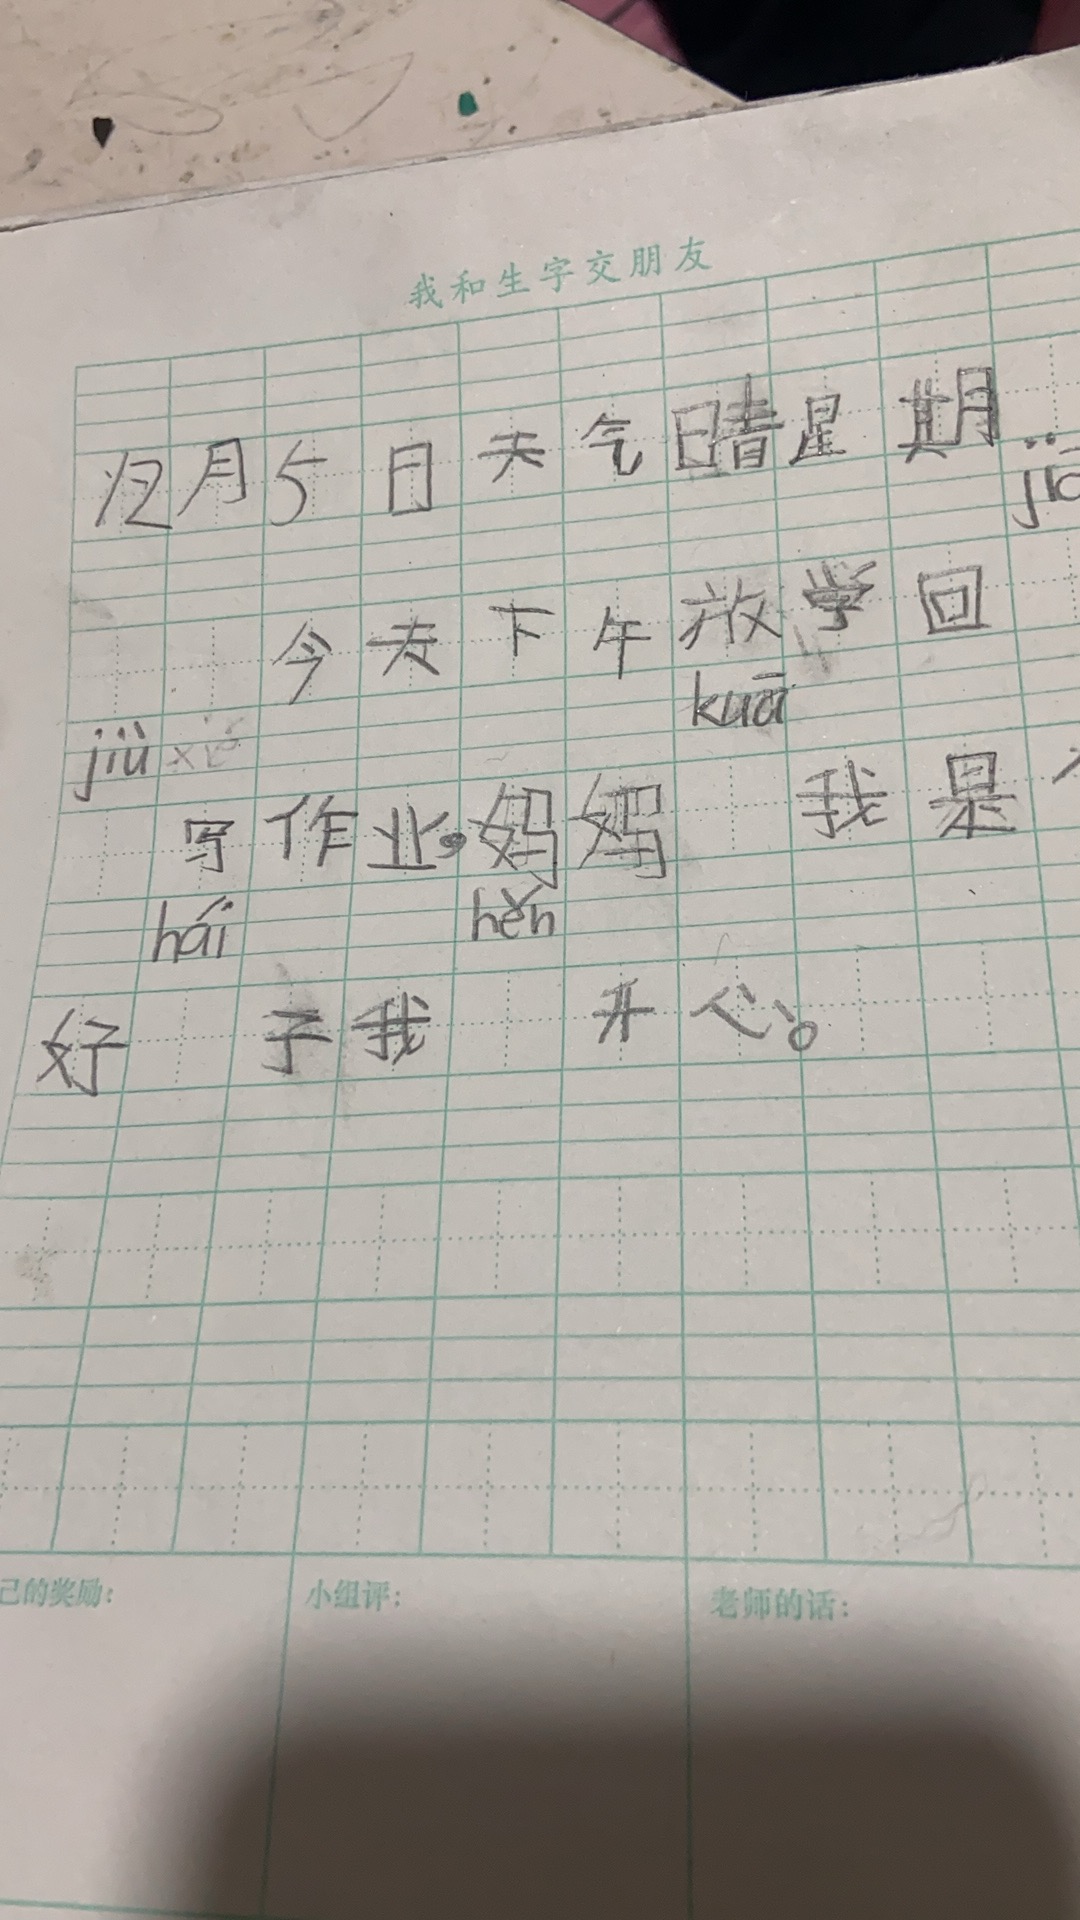 我和生字交朋友
12月5日天气晴星期
今天下午放学回
jiù
kuā
写作业。妈妈 我是
hái
hěn
好 子我 开心。
己的奖励：
小组评：
老师的话：